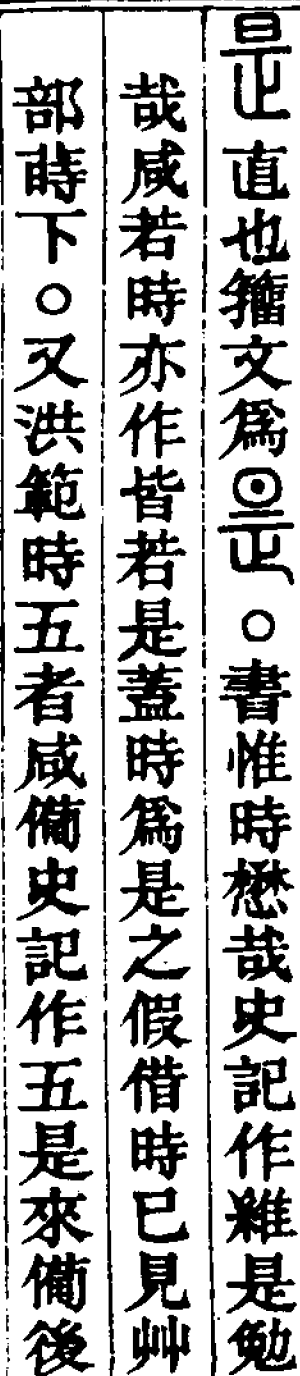 是直也籀文爲昰○書惟時懋哉史記作維是勉
哉咸若時亦作皆若是蓋時爲是之假借時已見艸
部蒔下○又洪範時五者咸備史記作五是來備後